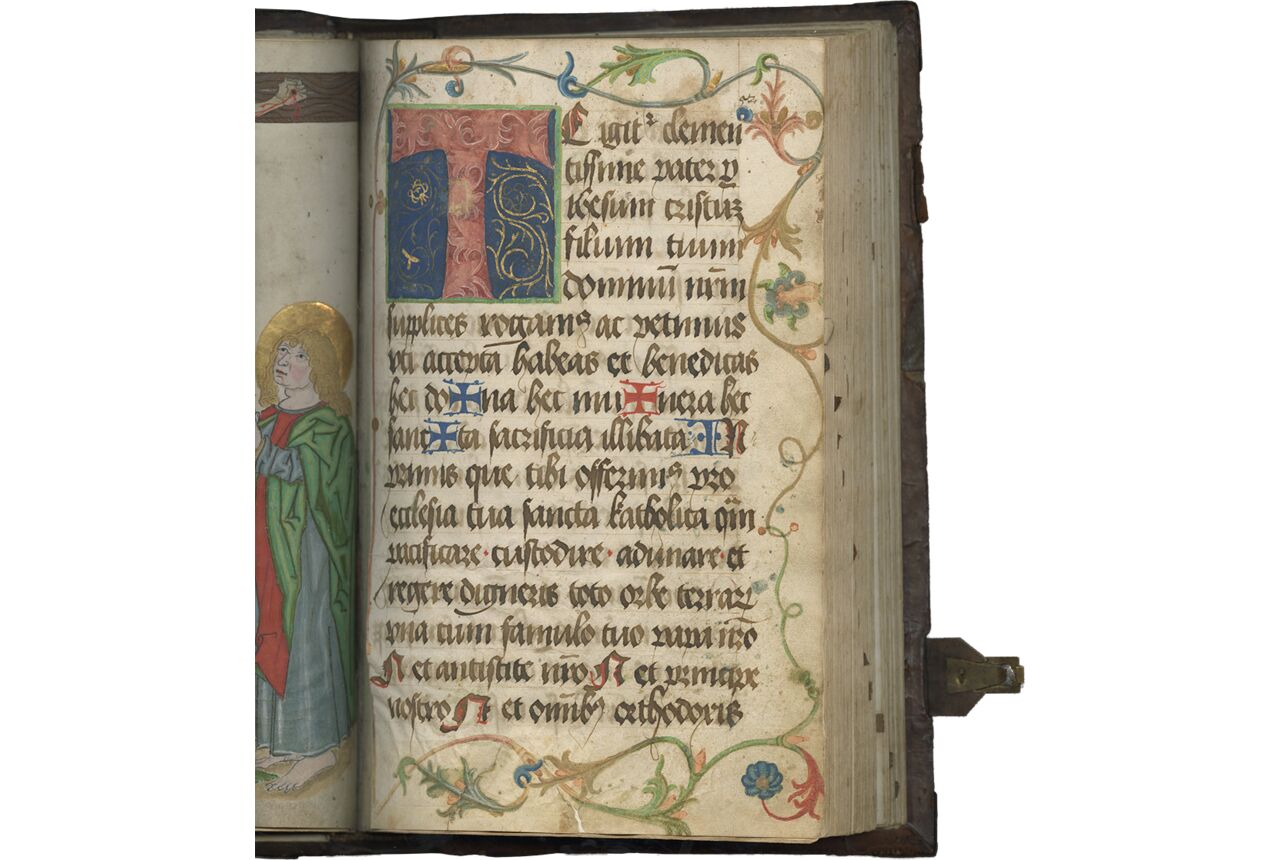 TE igit² clemen
tissime pater p̱
ihesum cristuʒ
filium tuum
dominū nr̄m
supplices rogamꝰ ac petimus
vti accepta habeas et benedicas
hec do✠na hec mu✠nera hec
sanc✠ta sacrificia illibata IN
primis que tibi offerimꝰ pro
ecclesia tua sancta katholica qm̄
pacificare · custodire · adunare · et
regere digneris toto orbe terraꝝ
vna cum famulo tuo papa nr̄o
N et antistite nr̄o N et principe
nostro N et omībꝰ orthodoxis